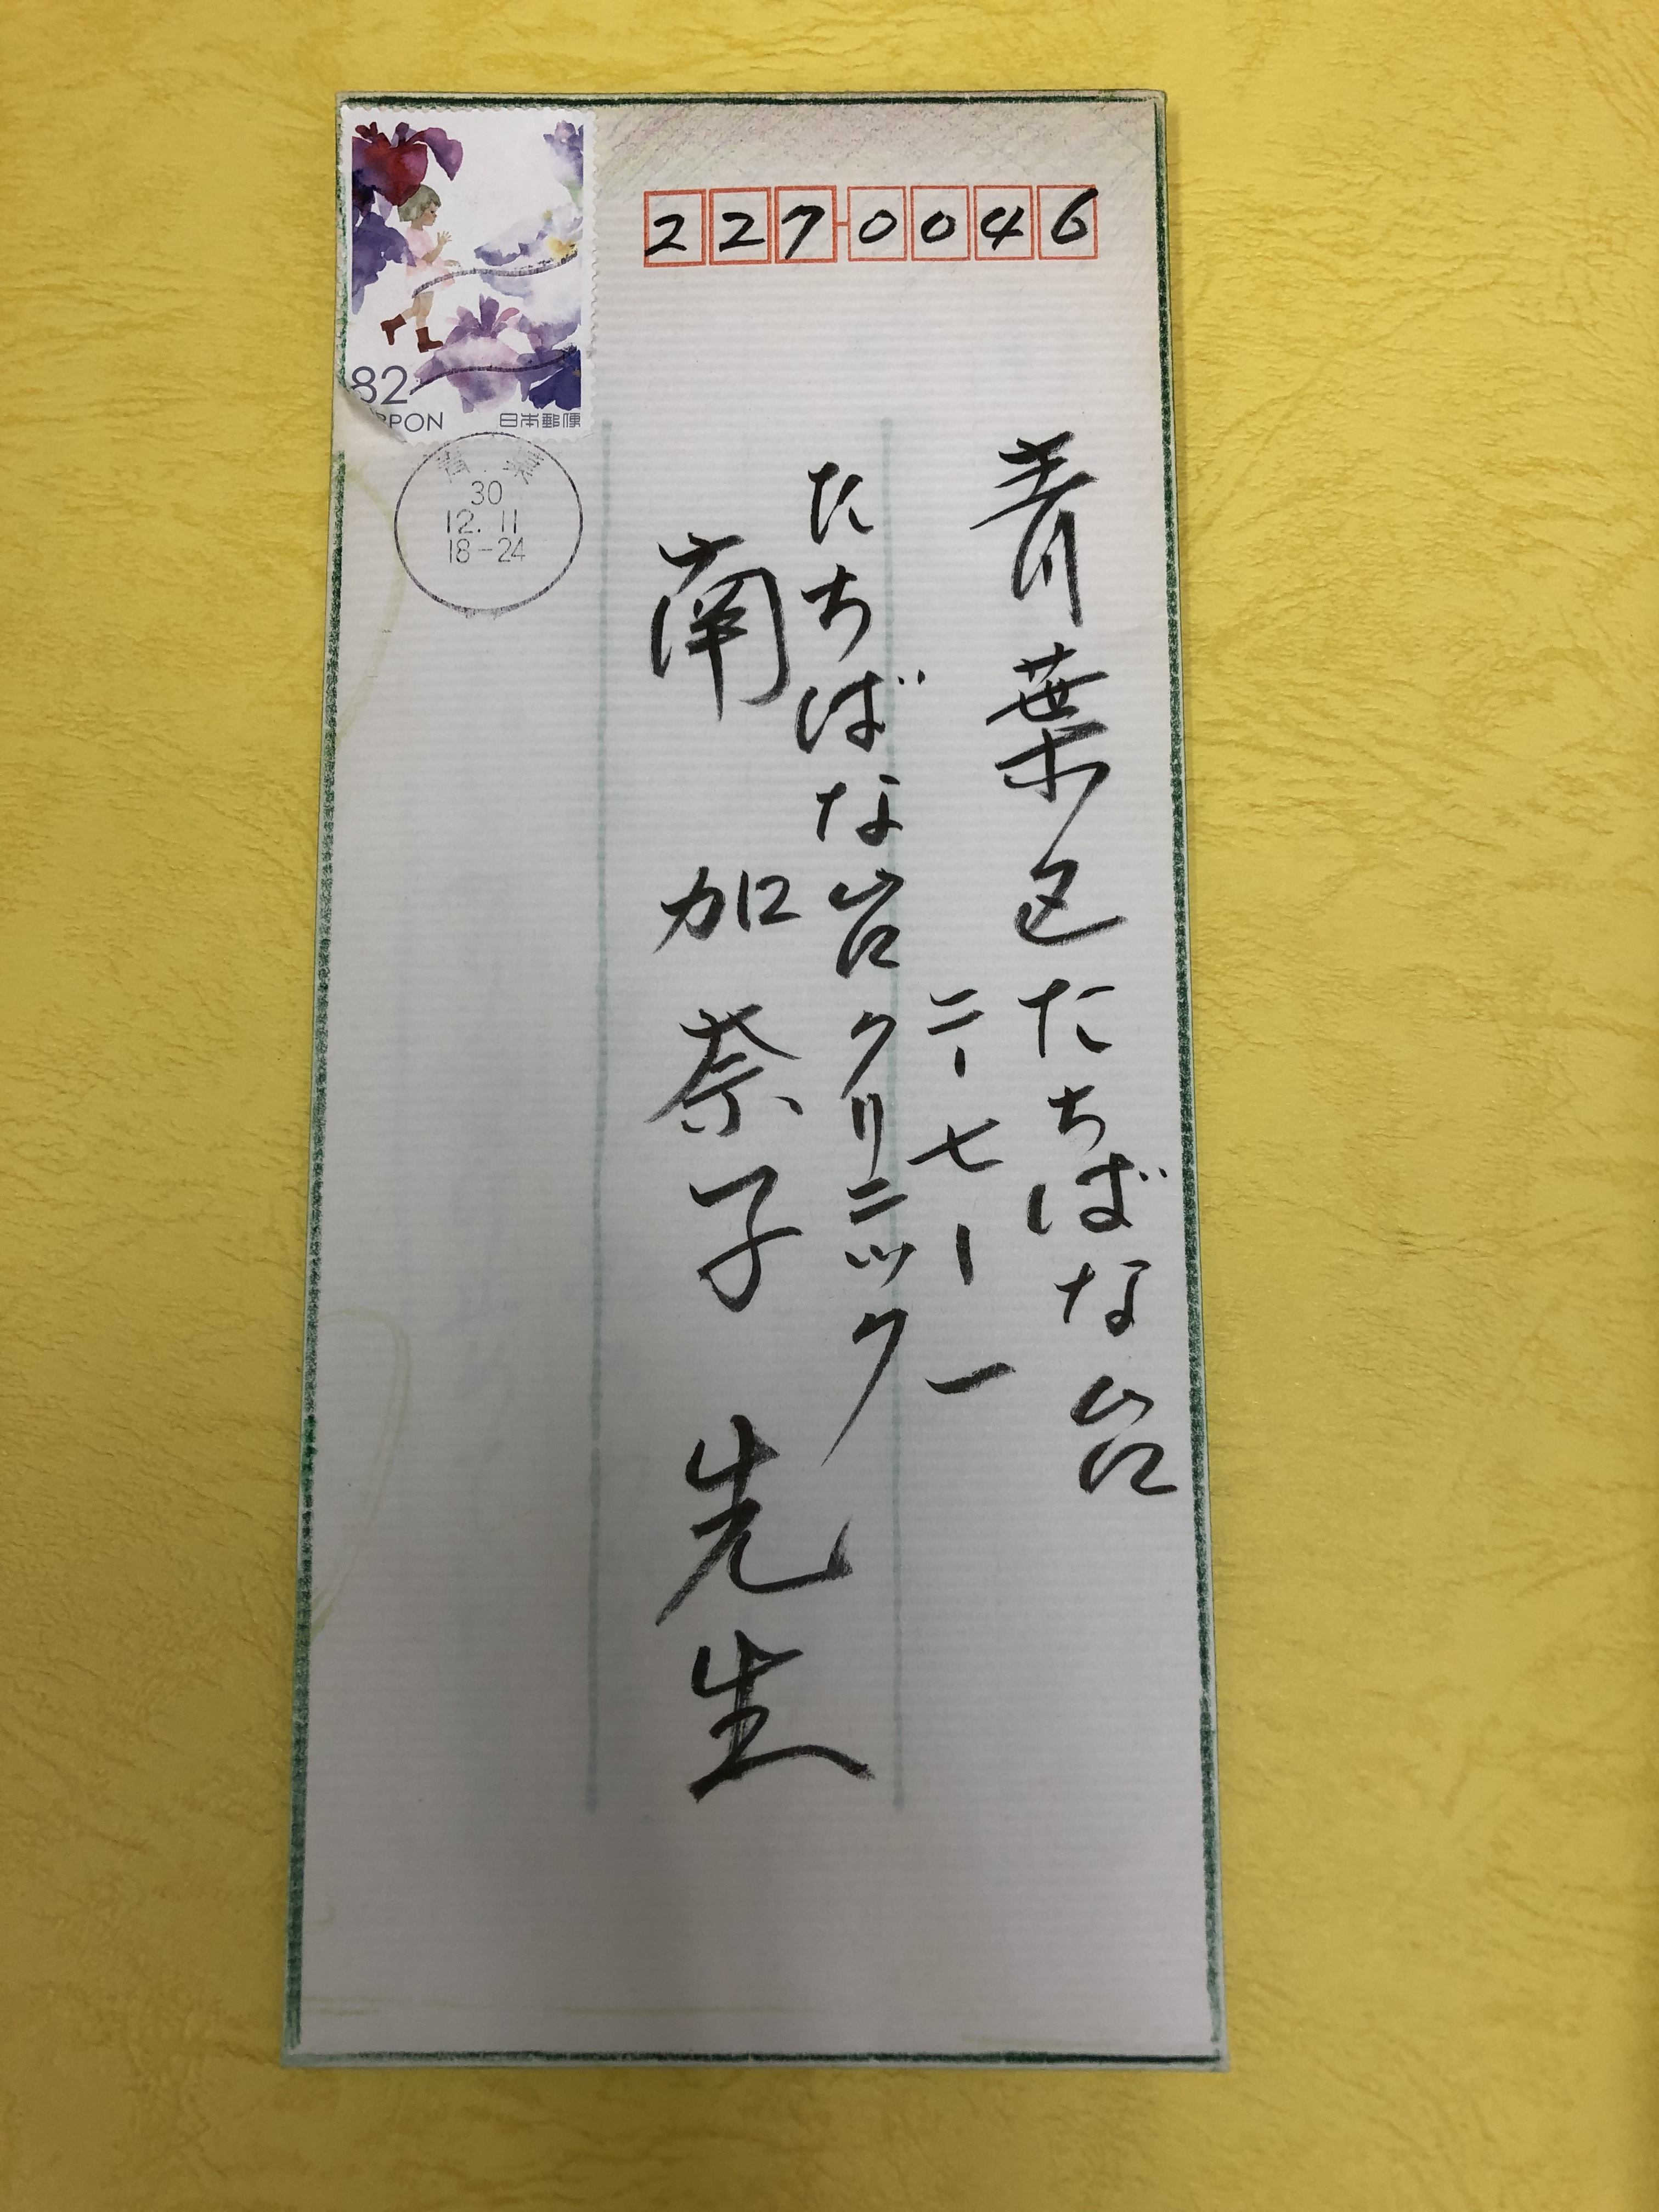 227-0046
青葉区たちばな台
二ー七ー一
たちばな台クリニック
南 加奈子 先生
82
NIPPON 日本郵便
30
12.11
18-24